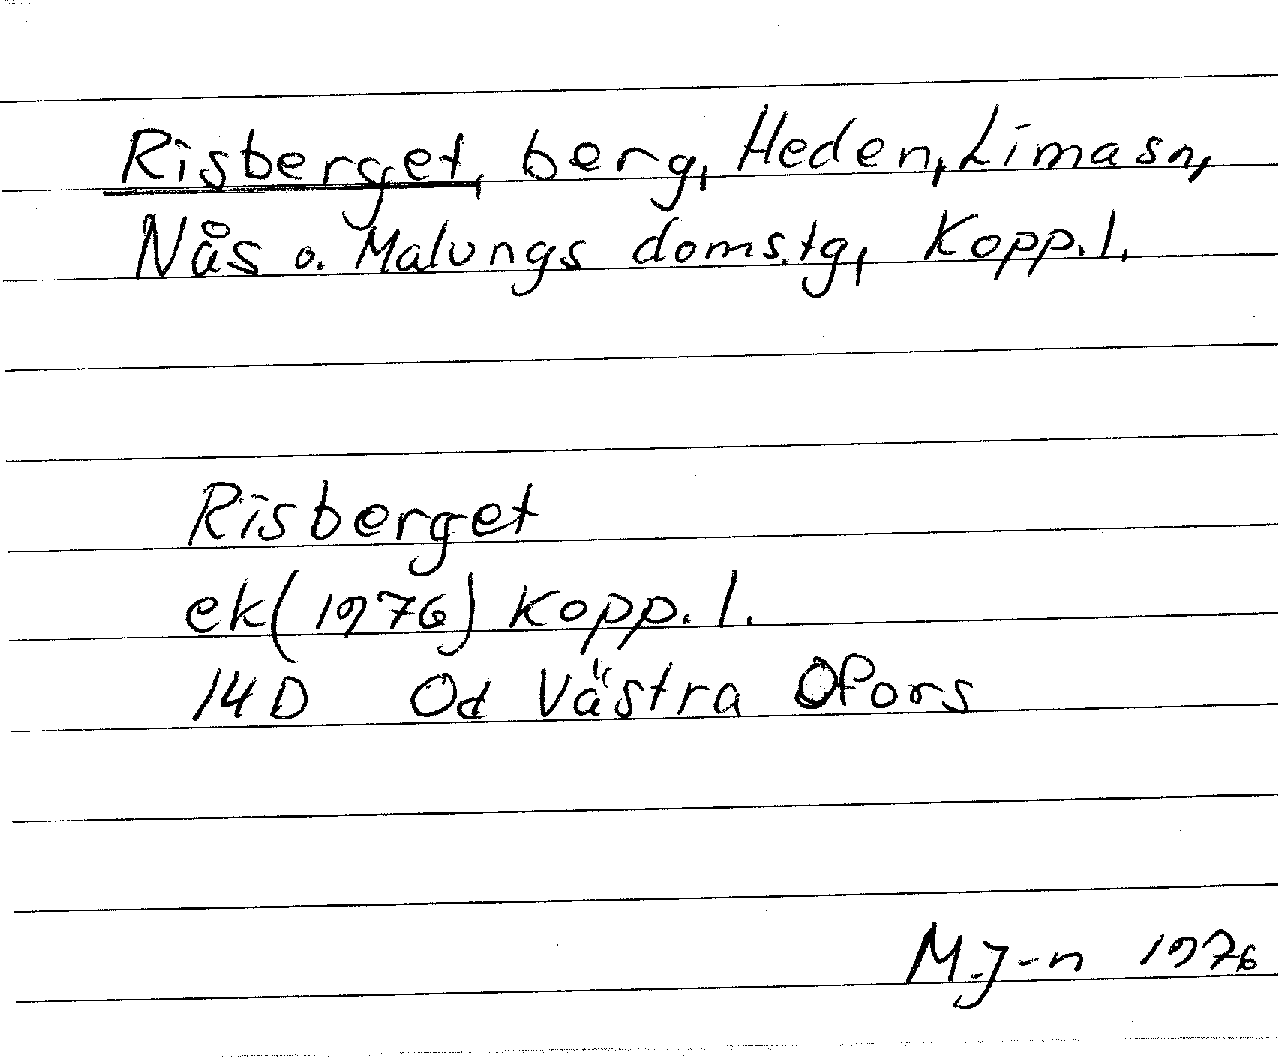 Risberget, berg, Heden, Lima sn,
Nås o. Malungs doms.tg, Kopp.l.
Risberget
ek(1976) Kopp.l.
14D Od Västra Ofors
M.J-n 1976